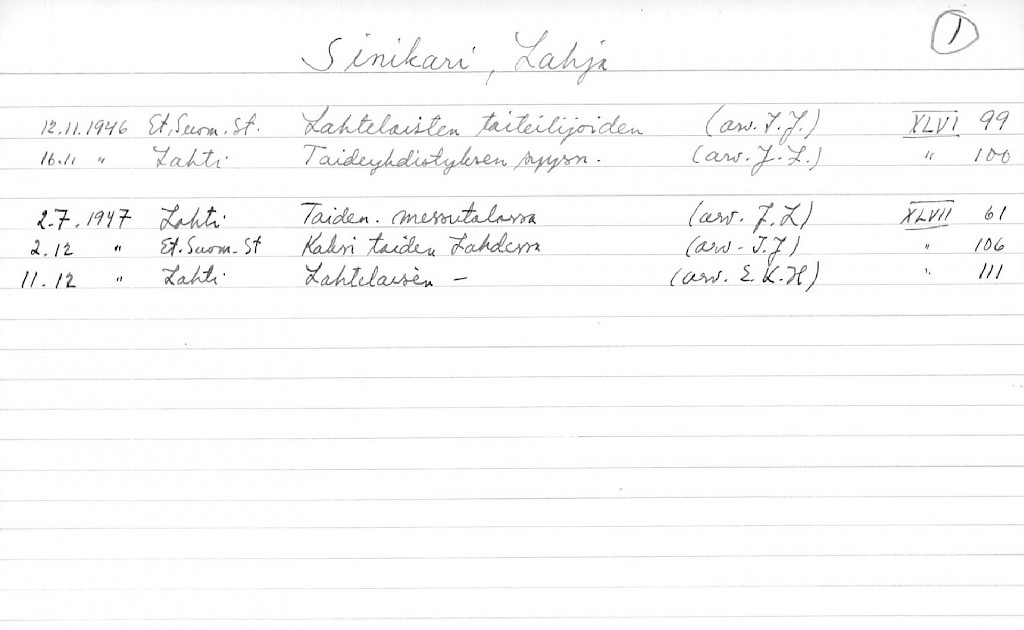 1
Sinikari, Lahja
12.11.1946 Et. Suom. St. Lahtelaisten taiteilijoiden (arv. I. J.) XLVI 99
16.11 " Lahti Taideyhdistyksen syysn. (arv. J. L.) " 100
2.7.1947 Lahti Taiden. messutalossa (arv. J. L) XLVII 61
2.12 " Et. Suom. St Kaksi taiden Lahdessa (arv. I. J) " 106
11.12 " Lahti Lahtelaisen — (arv. E. K. H) " 111